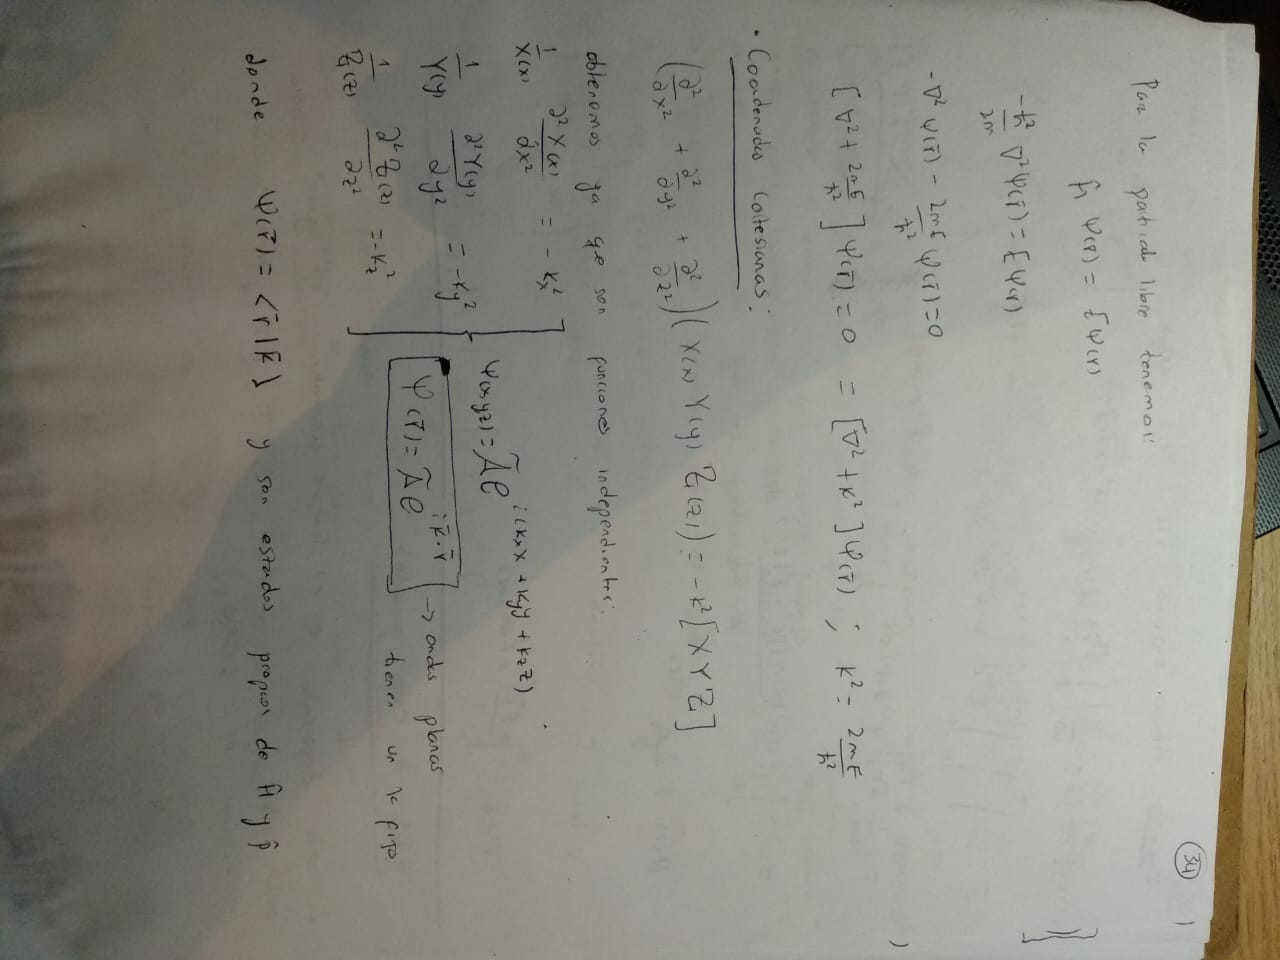 34
Para la particula libre tenemos:
Ĥ Ψ(r̄) = E Ψ(r)
-ħ²/2m ∇²Ψ(r̄) = E Ψ(r)
-∇² Ψ(r̄) - 2mE/ħ² Ψ(r̄) = 0
[∇² + 2mE/ħ²] Ψ(r̄) = 0 = [∇² + k²] Ψ(r̄) ; k² = 2mE/ħ²
• Coordenadas Cartesianas:
(∂²/∂x² + ∂²/∂y² + ∂²/∂z²)(X(x) Y(y) Z(z)) = -k² [X Y Z]
obtenemos ya qe son funciones independientes:
1/X(x) ∂²X(x)/∂x² = -kx²
1/Y(y) ∂²Y(y)/∂y² = -ky²
1/Z(z) ∂²Z(z)/∂z² = -kz²
Ψ(xyz) = Ã e^i(kxx + kyy + kzz)
Ψ(r̄) = Ã e^i k̄·r̄ → ondas planas
tienen un k fijo.
donde Ψ(r̄) = <r̄|k̄> y son estados propios de Ĥ y p̂